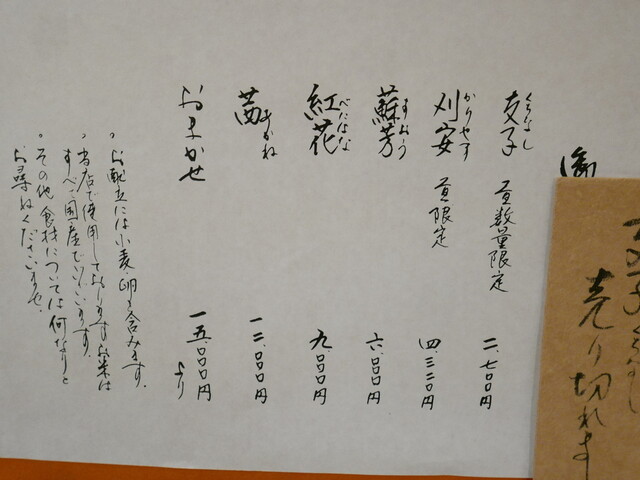 支子 くちなし 昼数量限定 二、七〇〇円
刈安 かりやす 昼限定 四、三二〇円
蘇芳 すおう 六、〇〇〇円
紅花 べにばな 九、〇〇〇円
茜 あかね 一二、〇〇〇円
おまかせ 一五、〇〇〇円より
・お献立には小麦、卵を含みます。
・当店で使用しておりますお米は
すべて国産でございます。
・その他食材については何なりと
お尋ねくださいませ。
支子 くちなし
売り切れま